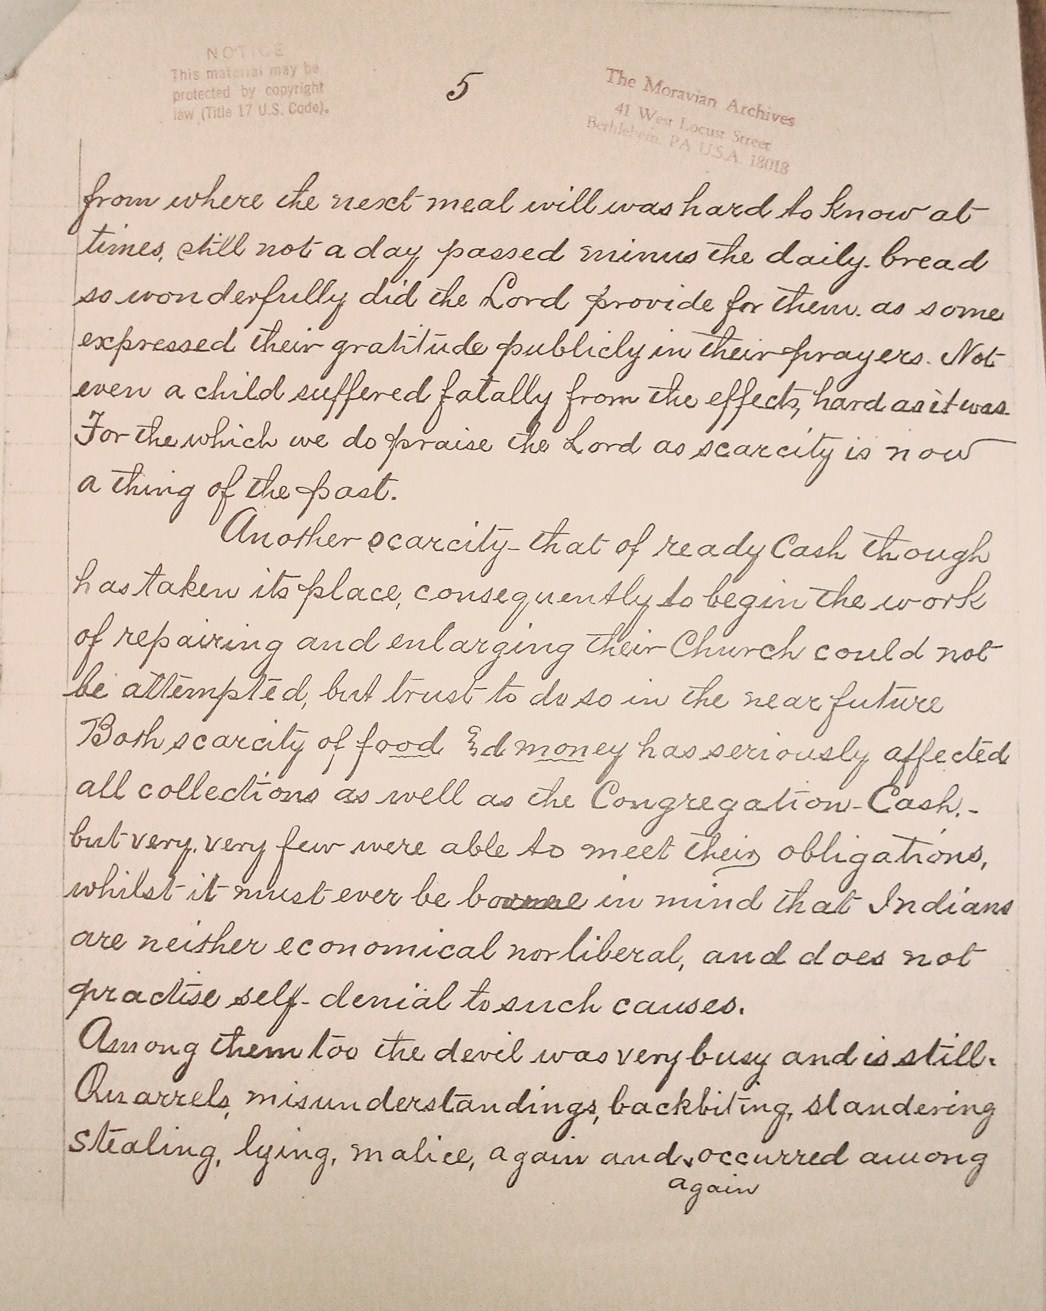 NOTICE
This material may be
protected by copyright
law (Title 17 U.S. Code).
5
The Moravian Archives
41 West Locust Street
Bethlehem, PA U.S.A. 18018
from where the next meal will was hard to know at
times, still not a day passed minus the daily bread
so wonderfully did the Lord provide for them. as some
expressed their gratitude publicly in their prayers. Not
even a child suffered fatally from the effects, hard as it was.
For the which we do praise the Lord as scarcity is now
a thing of the past.
Another scarcity - that of ready Cash though
has taken its place, consequently to begin the work
of repairing and enlarging their Church could not
be attempted, but trust to do so in the near future
Both scarcity of food &d money has seriously affected
all collections as well as the Congregation - Cash. -
but very, very few were able to meet their obligations,
whilst it must ever be borne in mind that Indians
are neither economical nor liberal, and does not
practise self-denial to such causes.
Among them too the devil was very busy and is still.
Quarrels, misunderstandings, backbiting, slandering
stealing, lying, malice, again and occurred among
again